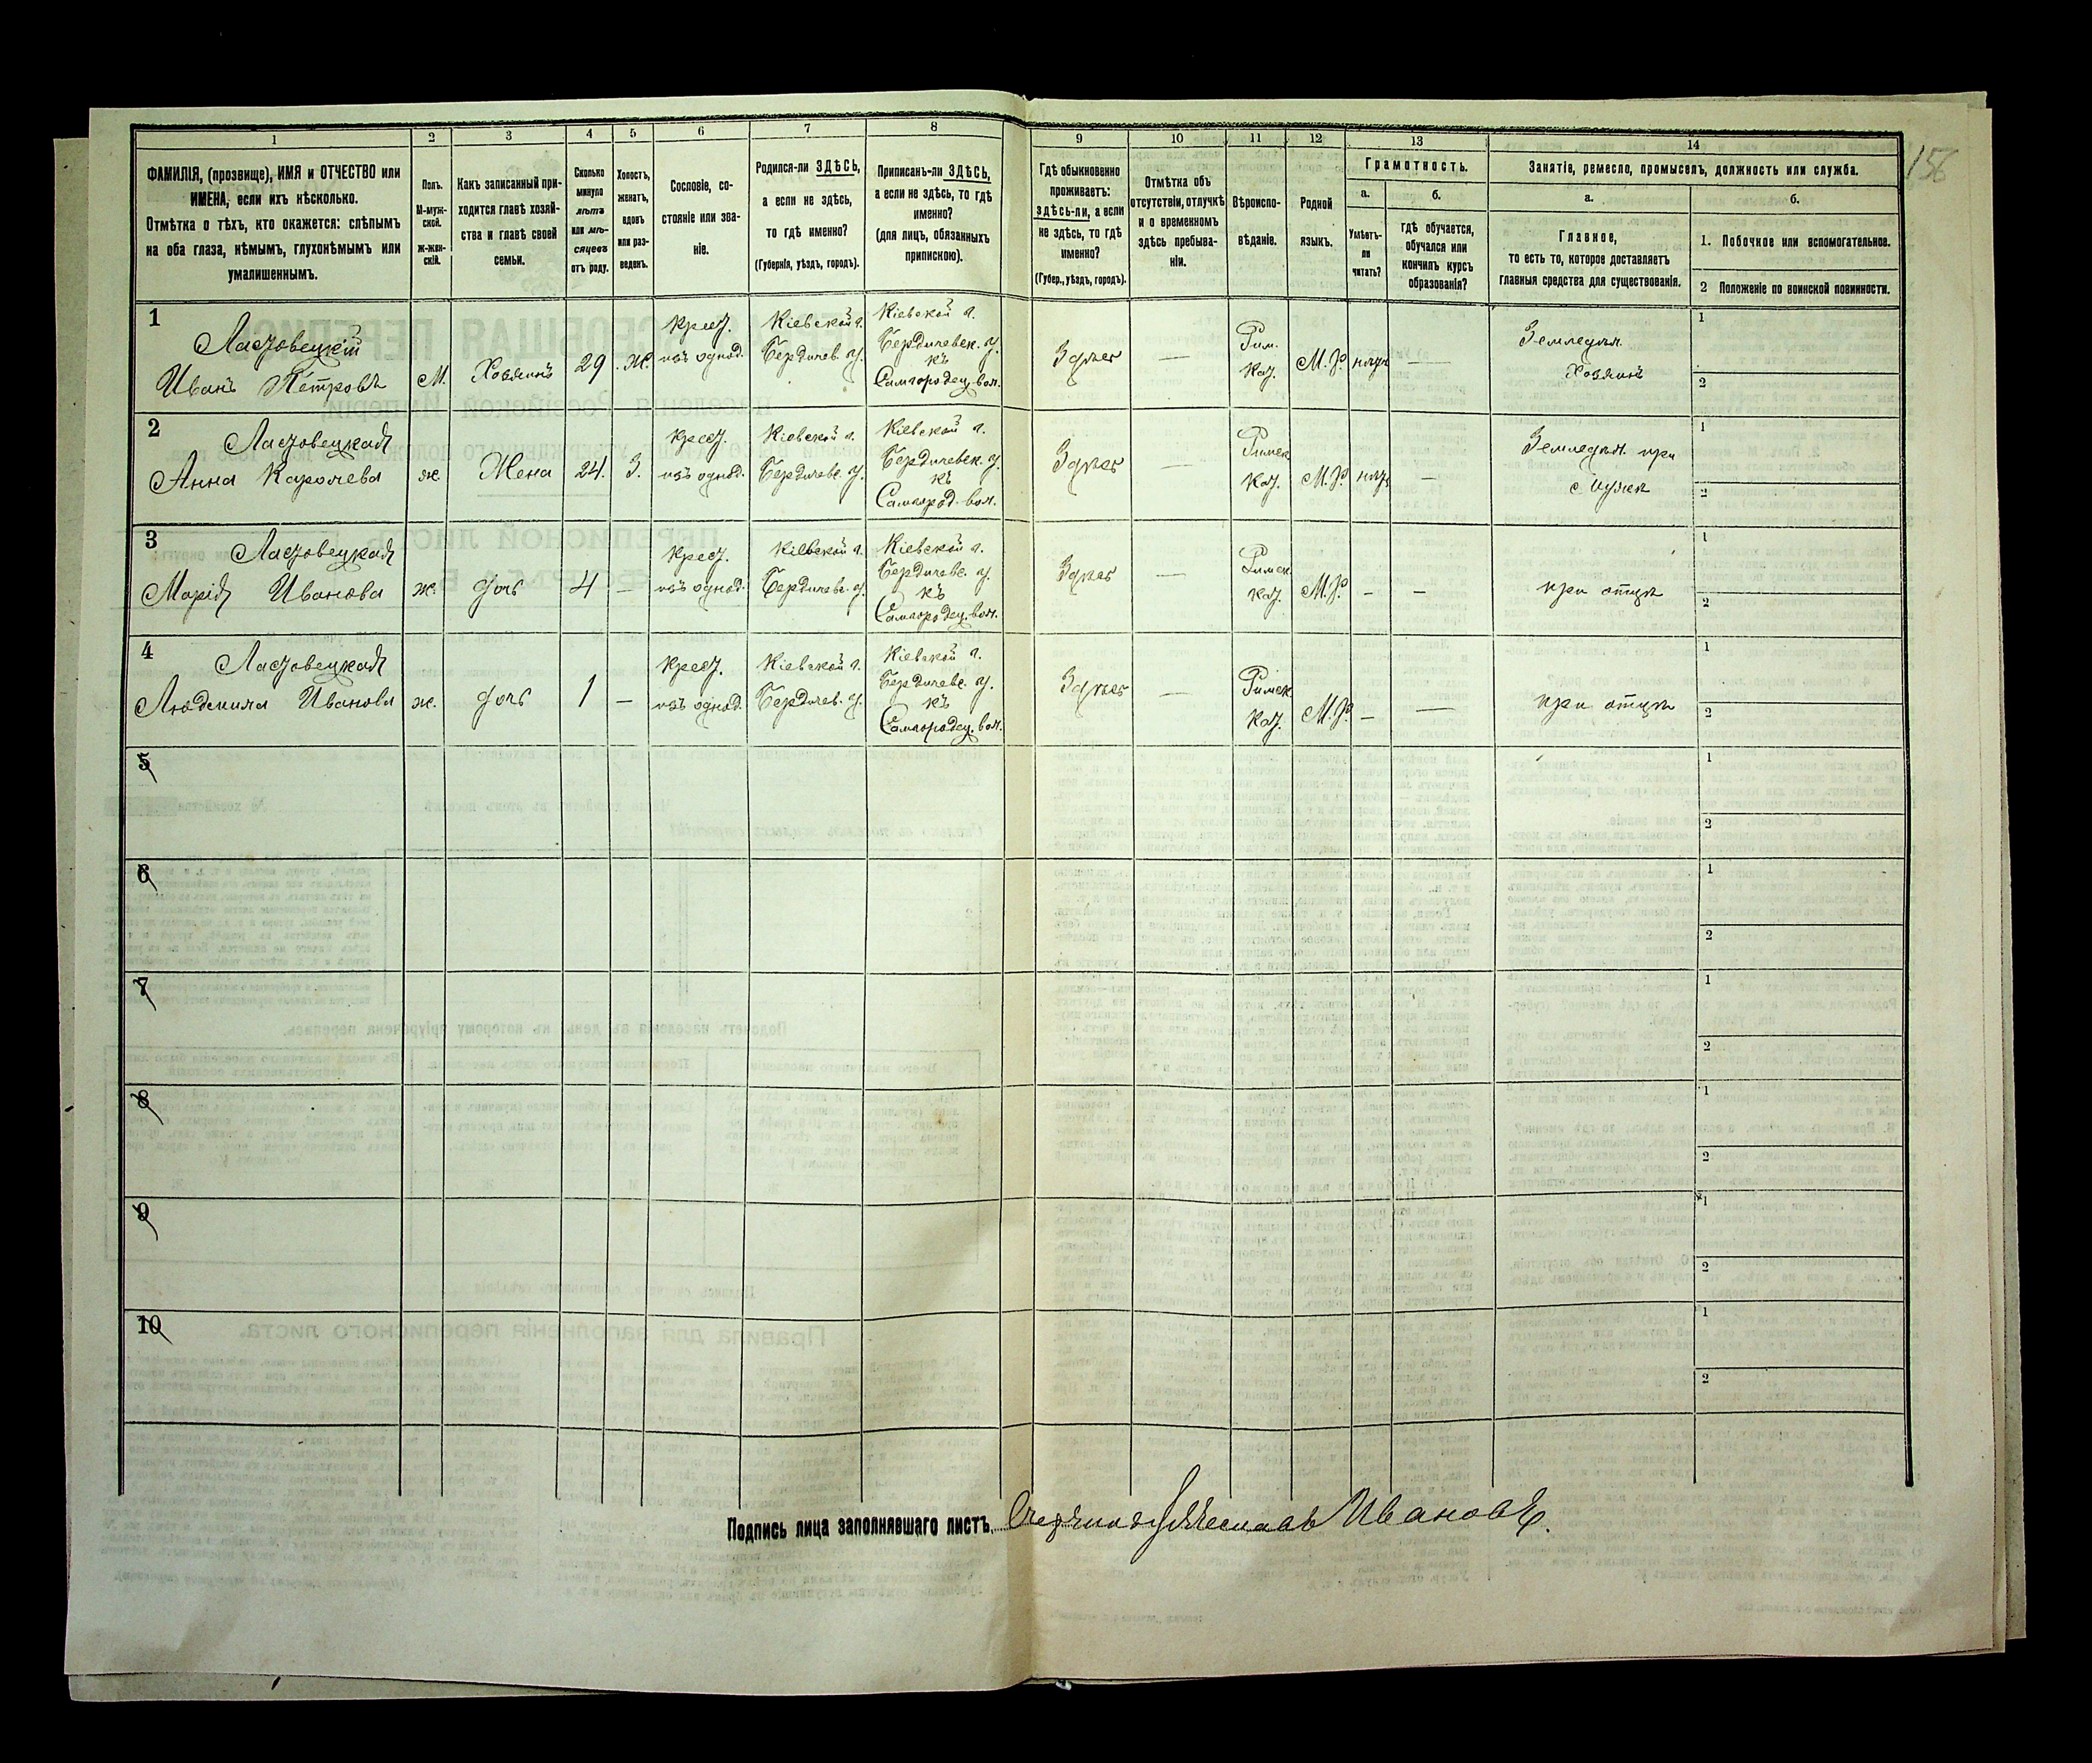 156
1
2
3
4
5
6
7
8
9
10
11
12
13
14
ФАМИЛІЯ, (прозвище), ИМЯ и ОТЧЕСТВО или
ИМЕНА, если ихъ нѣсколько.
Отмѣтка о тѣхъ, кто окажется: слѣпымъ
на оба глаза, нѣмымъ, глухонѣмымъ или
умалишеннымъ.
Полъ.
М-муж-
ской.
Ж-жен-
скій.
Какъ записанный при-
ходится главѣ хозяй-
ства и главѣ своей
семьи.
Сколько
минуло
лѣтъ
или мѣ-
сяцевъ
отъ роду.
Холостъ,
женатъ,
вдовъ
или раз-
веденъ.
Сословіе, со-
стояніе или зва-
ніе.
Родился-ли ЗДѢСЬ,
а если не здѣсь,
то гдѣ именно?
(Губернія, уѣздъ, городъ).
Приписанъ-ли ЗДѢСЬ,
а если не здѣсь, то гдѣ
именно?
(для лицъ, обязанныхъ
припискою).
Гдѣ обыкновенно
проживаетъ:
здѣсь-ли, а если
не здѣсь, то гдѣ
именно?
(Губер., уѣздъ, городъ).
Отмѣтка объ
отсутствіи, отлучкѣ
и о временномъ
здѣсь пребыва-
ніи.
Вѣроиспо-
вѣданіе.
Родной
языкъ.
Грамотность.
а.
Умѣетъ-
ли
читать?
б.
гдѣ обучается,
обучался или
кончилъ курсъ
образованія?
Занятіе, ремесло, промыселъ, должность или служба.
а.
Главное,
то есть то, которое доставляетъ
главныя средства для существованія.
б.
1. Побочное или вспомогательное.
2 Положеніе по воинской повинности.
1
Ластовецкій
Иванъ Петровъ
М.
Хозяинъ
29
Ж.
Крест.
изъ однод.
Кіевской г.
Бердичев. у.
Кіевской г.
Бердичевск. у.
къ
Самгородец. вол.
Здѣсь
—
Рим.
Кат.
М. Р.
нѣтъ
—
Земледѣл.
Хозяинъ
1
2
2
Ластовецкая
Анна Каролева
ж.
Жена
24.
З.
Крест.
изъ однод.
Кіевской г.
Бердичевс. у.
Кіевской г.
Бердичевск. у.
къ
Самгород. вол.
Здѣсь
—
Римск
Кат.
М. Р.
нѣтъ
—
Земледѣл. при
мужѣ
1
2
3
Ластовецкая
Марія Иванова
ж.
дочь
4
—
Крест.
изъ однод.
Кіевской г.
Бердичевс. у.
Кіевской г.
Бердичевс. у.
къ
Самгородец. вол.
Здѣсь
—
Римск
Кат.
М. Р.
—
—
при отцѣ
1
2
4
Ластовецкая
Людмила Иванова
ж.
дочь
1
—
Крест.
изъ однод.
Кіевской г.
Бердичев. у.
Кіевской г.
Бердичевс. у.
къ
Самгородец. вол.
Здѣсь
—
Римск
Кат.
М. Р.
—
—
при отцѣ
1
2
5
1
2
6
1
2
7
1
2
8
1
2
9
1
2
10
1
2
Подпись лица заполнявшаго листъ. Ивановъ.